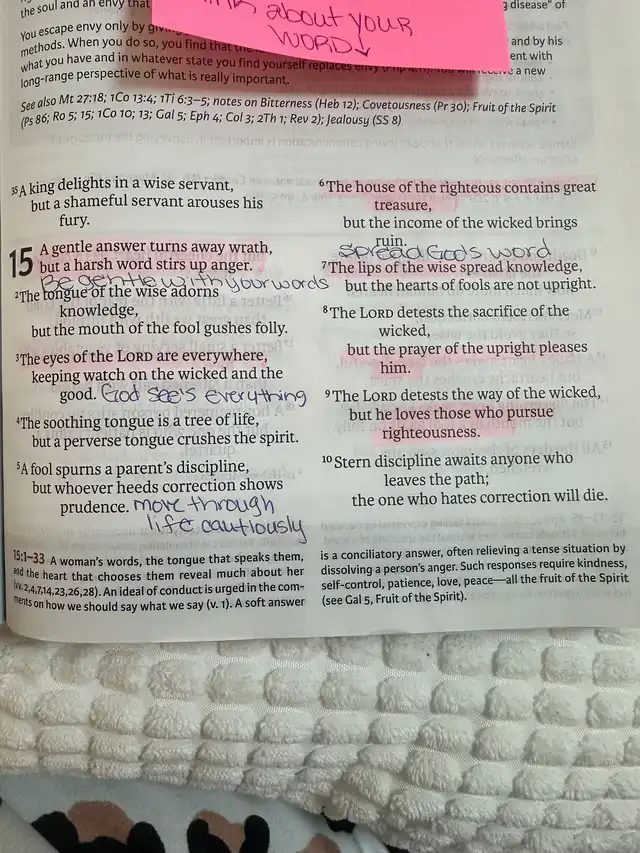 the soul and an envy that
g disease" of
about YOUR
WORD↓
You escape envy only by
and by his
methods. When you do so, you find that
ent with
what you have and in whatever state you find yourself replaces envy
a new
long-range perspective of what is really important.
See also Mt 27:18; 1Co 13:4; 1Ti 6:3–5; notes on Bitterness (Heb 12); Covetousness (Pr 30); Fruit of the Spirit
(Ps 86; Ro 5; 15; 1Co 10; 13; Gal 5; Eph 4; Col 3; 2Th 1; Rev 2); Jealousy (SS 8)
35 A king delights in a wise servant,
but a shameful servant arouses his
fury.
15 A gentle answer turns away wrath,
but a harsh word stirs up anger.
Be gentle with your words
2 The tongue of the wise adorns
knowledge,
but the mouth of the fool gushes folly.
3 The eyes of the LORD are everywhere,
keeping watch on the wicked and the
good. God see's everything
4 The soothing tongue is a tree of life,
but a perverse tongue crushes the spirit.
5 A fool spurns a parent's discipline,
but whoever heeds correction shows
prudence. move through
life cautiously
6 The house of the righteous contains great
treasure,
but the income of the wicked brings
ruin.
Spread God's word
7 The lips of the wise spread knowledge,
but the hearts of fools are not upright.
8 The LORD detests the sacrifice of the
wicked,
but the prayer of the upright pleases
him.
9 The LORD detests the way of the wicked,
but he loves those who pursue
righteousness.
10 Stern discipline awaits anyone who
leaves the path;
the one who hates correction will die.
15:1–33 A woman's words, the tongue that speaks them,
and the heart that chooses them reveal much about her
(vv. 2,4,7,14,23,26,28). An ideal of conduct is urged in the com-
ments on how we should say what we say (v. 1). A soft answer
is a conciliatory answer, often relieving a tense situation by
dissolving a person's anger. Such responses require kindness,
self-control, patience, love, peace—all the fruit of the Spirit
(see Gal 5, Fruit of the Spirit).